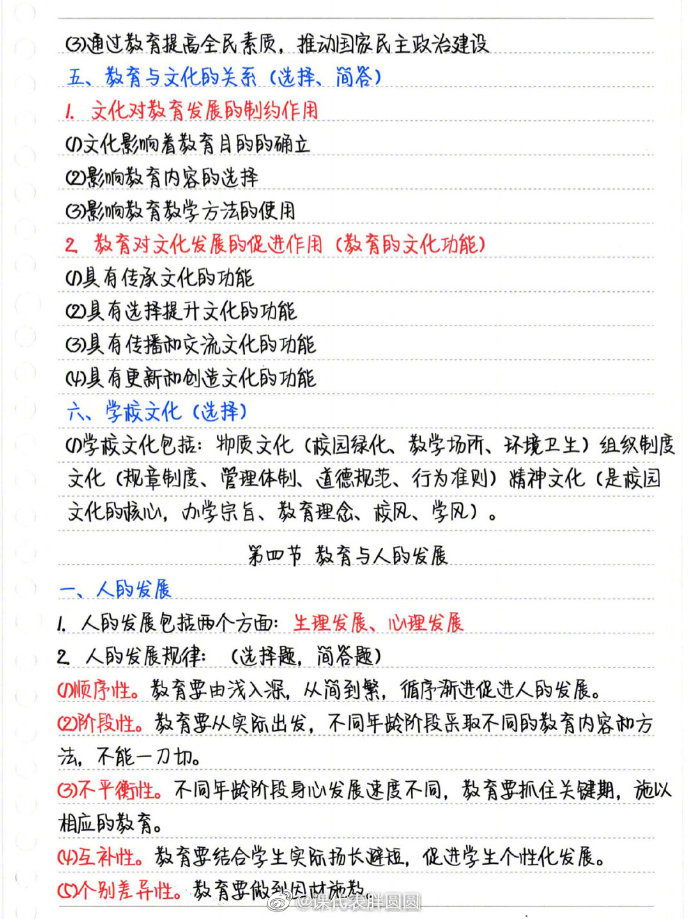 (3)通过教育提高全民素质，推动国家民主政治建设
五、教育与文化的关系（选择、简答）
1. 文化对教育发展的制约作用
(1)文化影响着教育目的的确立
(2)影响教育内容的选择
(3)影响教育教学方法的使用
2. 教育对文化发展的促进作用（教育的文化功能）
(1)具有传承文化的功能
(2)具有选择提升文化的功能
(3)具有传播和交流文化的功能
(4)具有更新和创造文化的功能
六、学校文化（选择）
(1)学校文化包括：物质文化（校园绿化、教学场所、环境卫生）组织制度
文化（规章制度、管理体制、道德规范、行为准则）精神文化（是校园
文化的核心，办学宗旨、教育理念、校风、学风）。
第四节 教育与人的发展
一、人的发展
1. 人的发展包括两个方面：生理发展、心理发展
2. 人的发展规律：（选择题，简答题）
(1)顺序性。教育要由浅入深，从简到繁，循序渐进促进人的发展。
(2)阶段性。教育要从实际出发，不同年龄阶段采取不同的教育内容和方
法，不能一刀切。
(3)不平衡性。不同年龄阶段身心发展速度不同，教育要抓住关键期，施以
相应的教育。
(4)互补性。教育要结合学生实际扬长避短，促进学生个性化发展。
(5)个别差异性。教育要做到因材施教。
@课代表胖圆圆